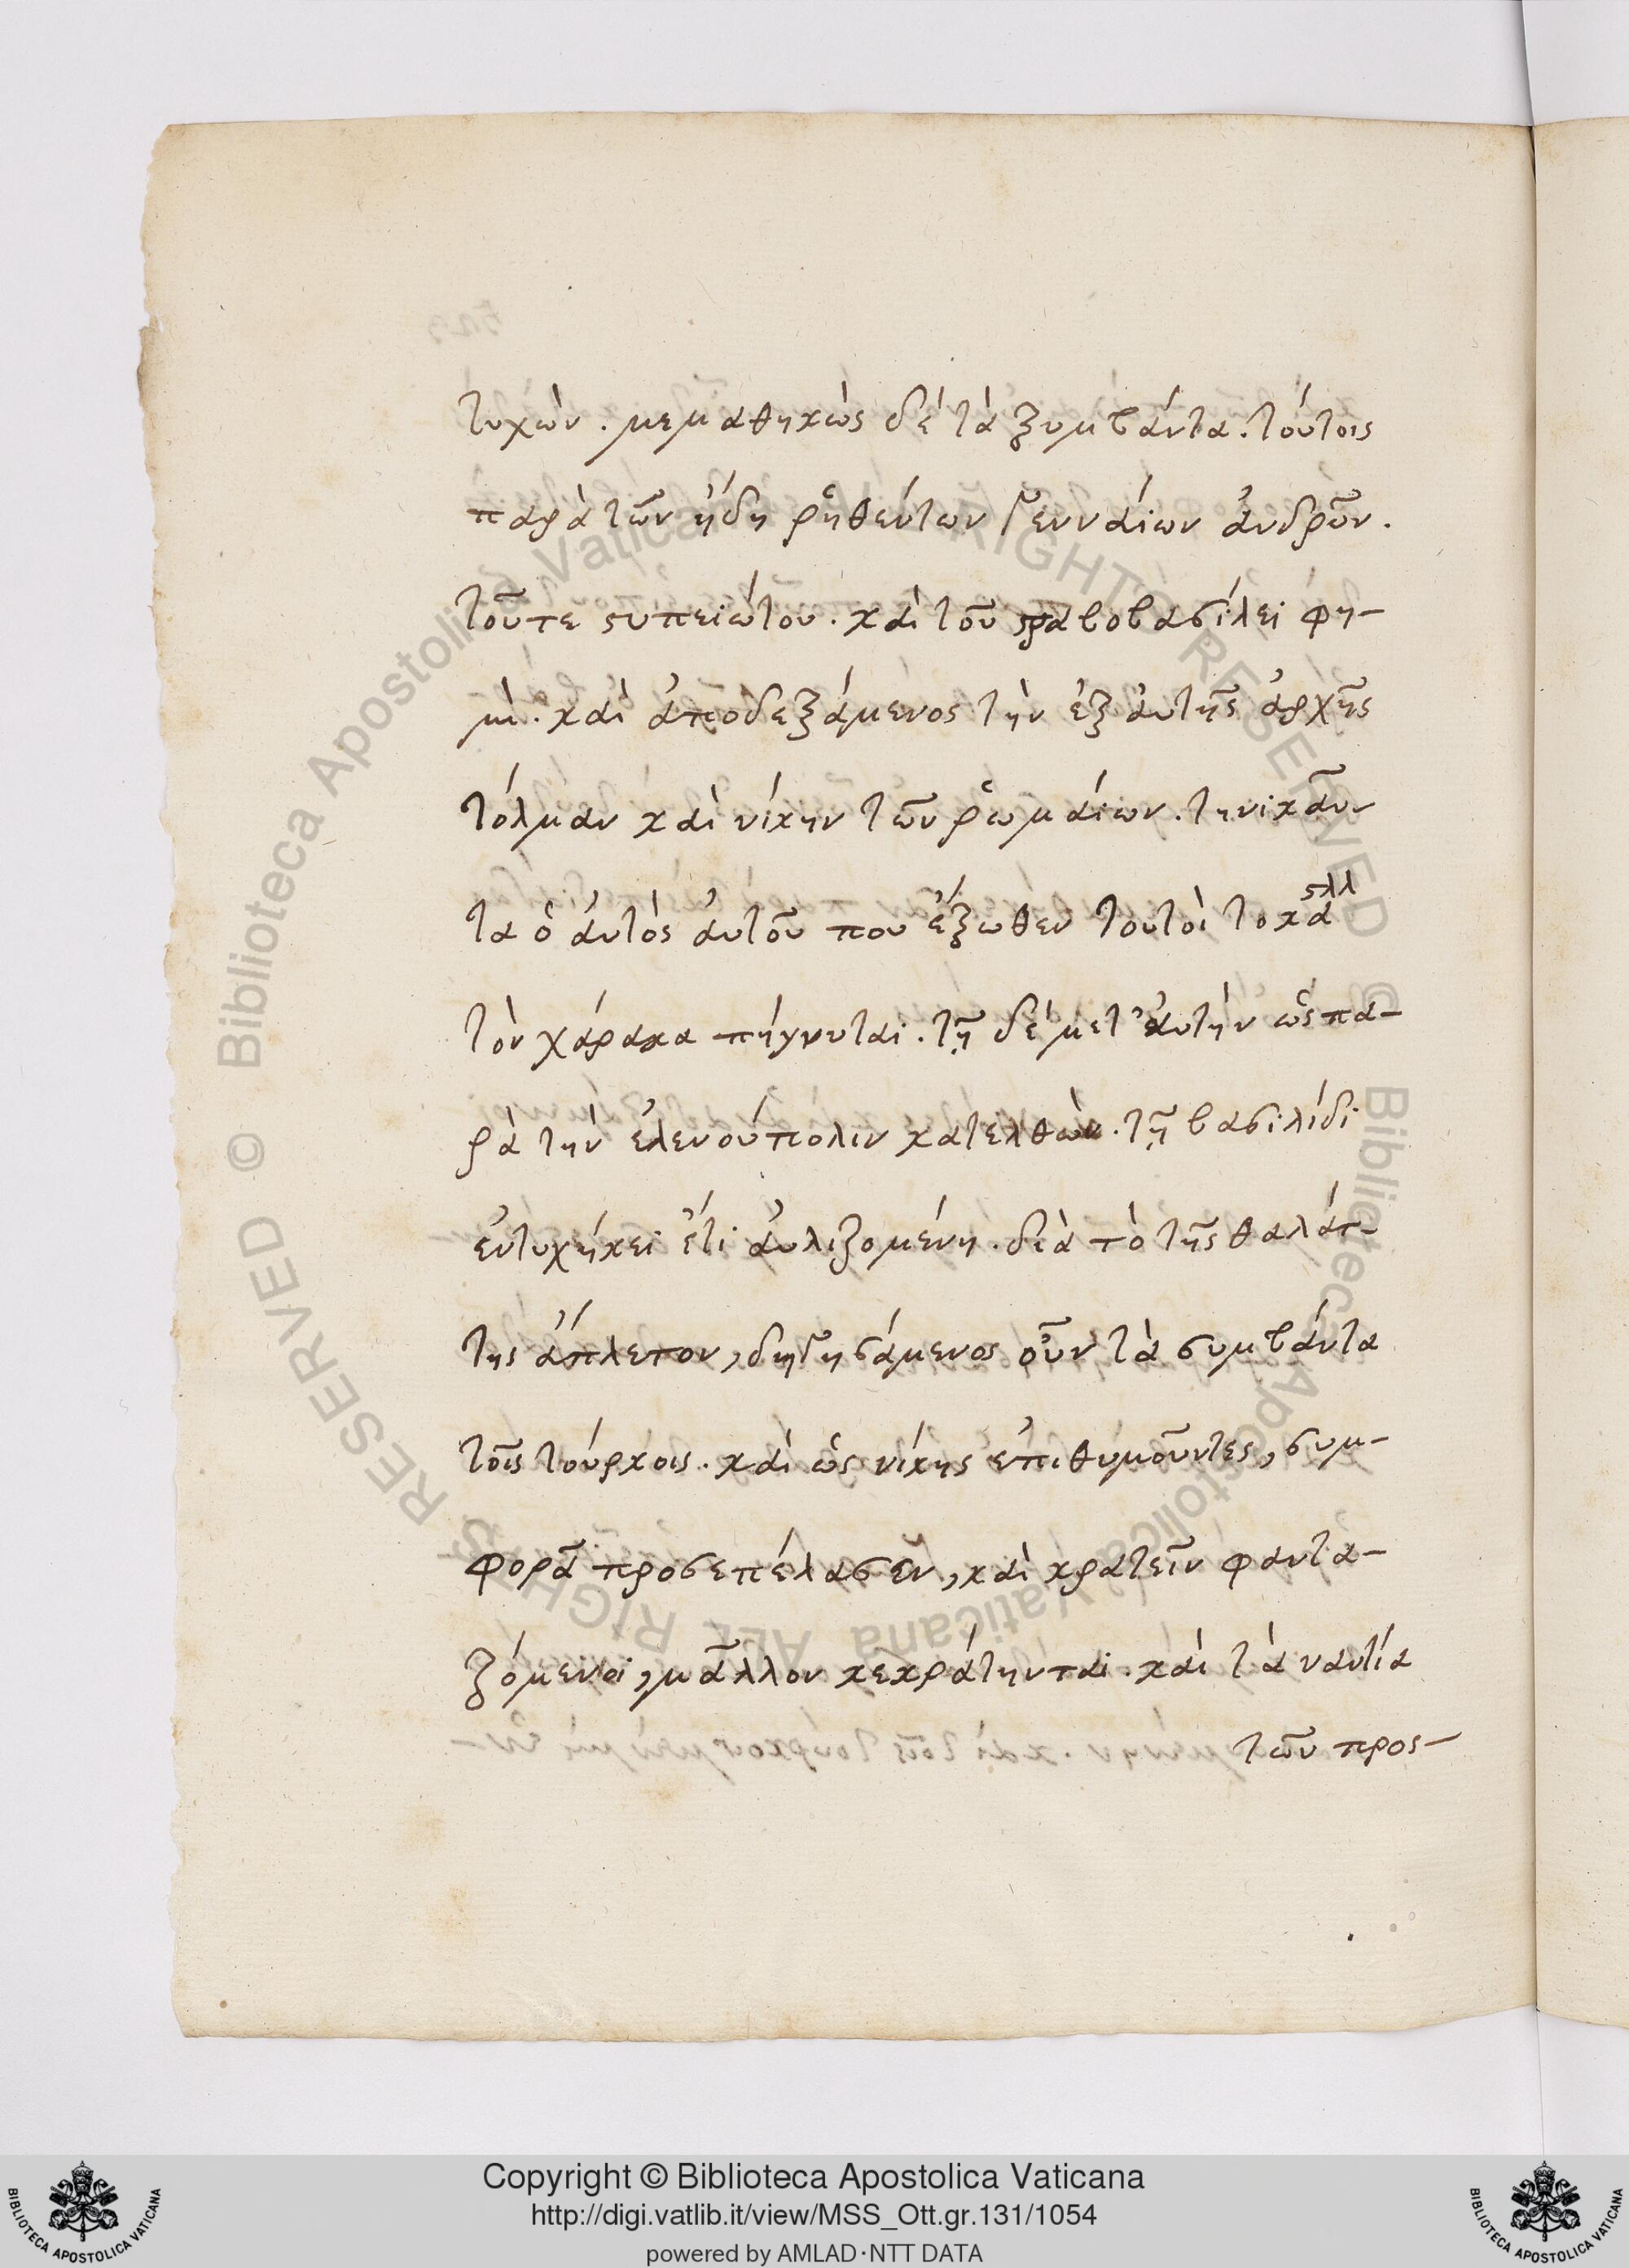 τυχὼν. μεμαθηκὼς δὲ τὰ ξυμβάντα. τούτοις
παρὰ τῶν ἤδη ῥηθέντων γενναίων ἀνδρῶν.
τοῦτε στυπειώτου. καὶ τοῦ στραβοβασίλει φη-
μὶ. καὶ ἀποδεξάμενος τὴν ἐξ ἀυτῆς ἀρχῆς
τόλμαν καὶ νίκην τῶν ῥωμαίων. τηνικαῦ-
τα ὁ ἀυτὸς ἀυτοῦ που ἔξωθεν τουτοὶ τοκά
στλλ
τὸν χάρακα πήγνυται. τῇ δὲ μετ' ἀυτὴν ὡς πα-
ρὰ τὴν ἑλενούπολιν κατελθὼν. τῇ βασιλίδι
ἐντυχήκει ἔτι ἀυλιζομένη. διὰ τὸ τῆς θαλάτ-
της ἄπλετον, διηγησάμενος οὖν τὰ συμβάντα
τοῖς τούρκοις. καὶ ὡς νίκης ἐπιθυμοῦντες, συμ-
φορᾶ προσεπέλασαν, καὶ κρατεῖν φαντα-
ζόμενοι, μᾶλλον κεκράτηνται. καὶ τὰ ναντία
τῶν προσ-
Biblioteca Apostolica Vaticana ALL RIGHTS RESERVED ©
Copyright © Biblioteca Apostolica Vaticana
http://digi.vatlib.it/view/MSS_Ott.gr.131/1054
powered by AMLAD·NTT DATA
BIBLIOTECA APOSTOLICA VATICANA
BIBLIOTECA APOSTOLICA VATICANA